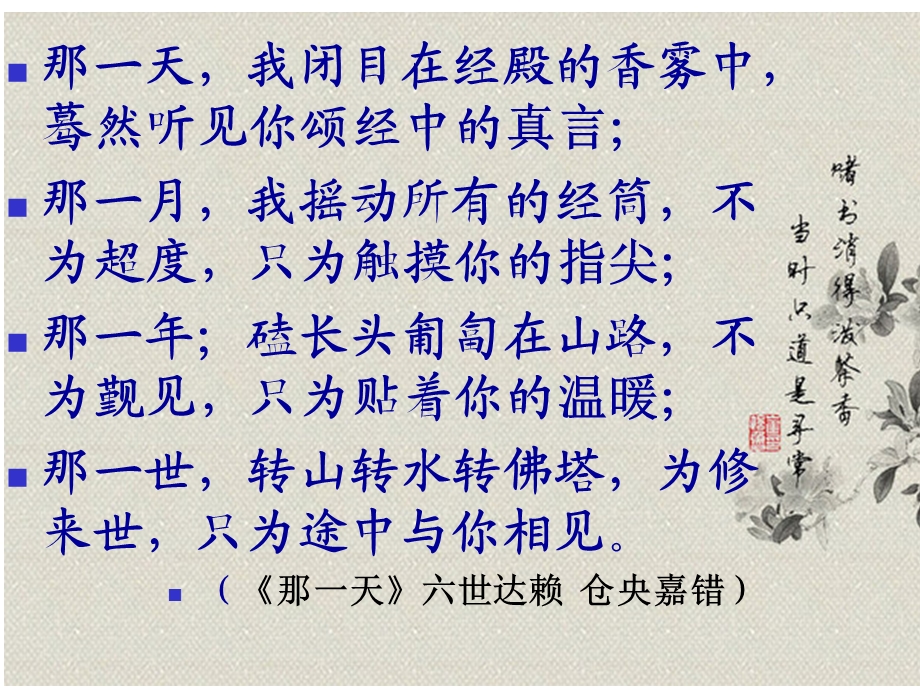 那一天，我闭目在经殿的香雾中，
蓦然听见你颂经中的真言；
那一月，我摇动所有的经筒，不
为超度，只为触摸你的指尖；
那一年；磕长头匍匐在山路，不
为觐见，只为贴着你的温暖；
那一世，转山转水转佛塔，为修
来世，只为途中与你相见。
（《那一天》六世达赖 仓央嘉错）
啫书消得泼茶香
当时只道是寻常